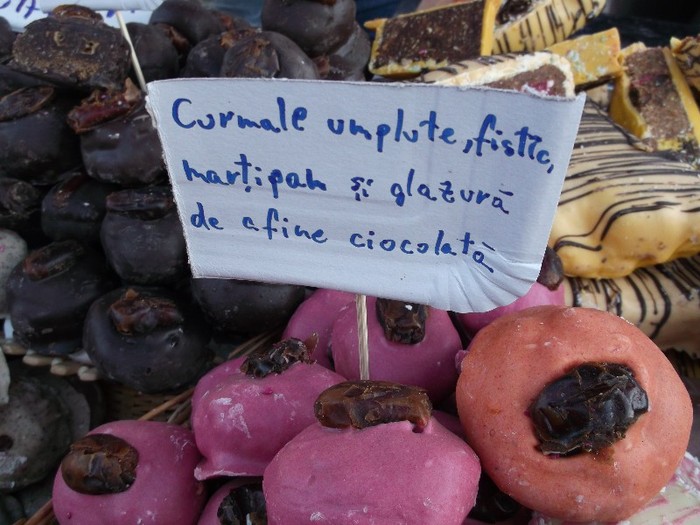 Curmale umplute, fistic,
marțipan și glazură
de afine ciocolată